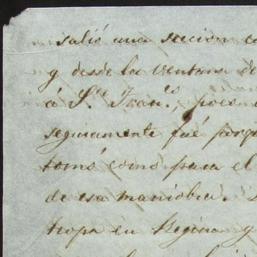 salió una sección co
y desde la ventana de
á Sn. Franco. pues
seguramente fué porqu
tomó como para el
de esa maniobra.
tropa en Regina y